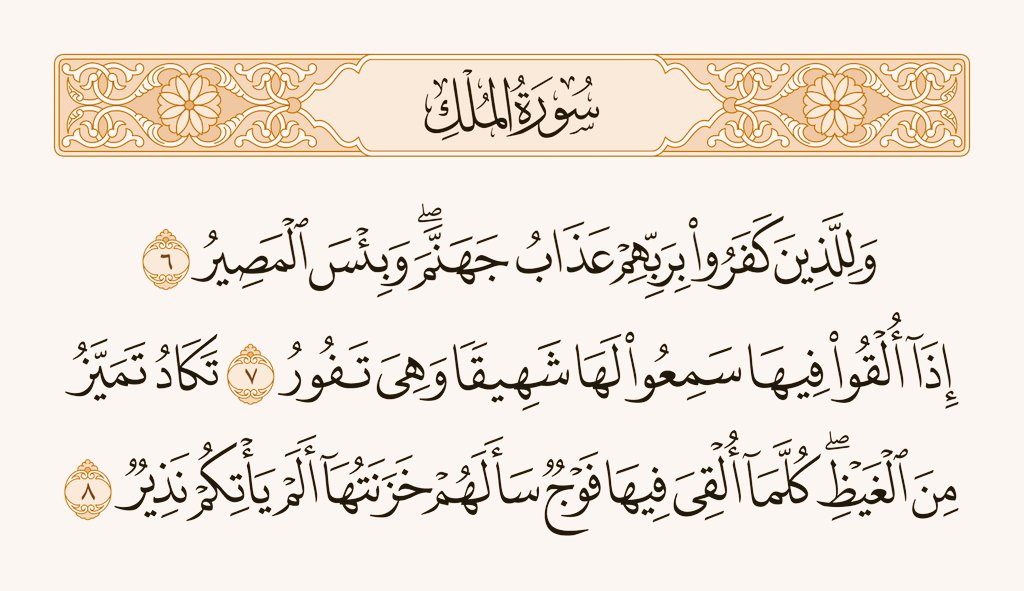 سُورَةُ المُلْكِ
وَلِلَّذِينَ كَفَرُوا۟ بِرَبِّهِمْ عَذَابُ جَهَنَّمَ ۖ وَبِئْسَ ٱلْمَصِيرُ ٦
إِذَآ أُلْقُوا۟ فِيهَا سَمِعُوا۟ لَهَا شَهِيقًا وَهِىَ تَفُورُ ٧ تَكَادُ تَمَيَّزُ
مِنَ ٱلْغَيْظِ ۖ كُلَّمَآ أُلْقِىَ فِيهَا فَوْجٌ سَأَلَهُمْ خَزَنَتُهَآ أَلَمْ يَأْتِكُمْ نَذِيرٌ ٨